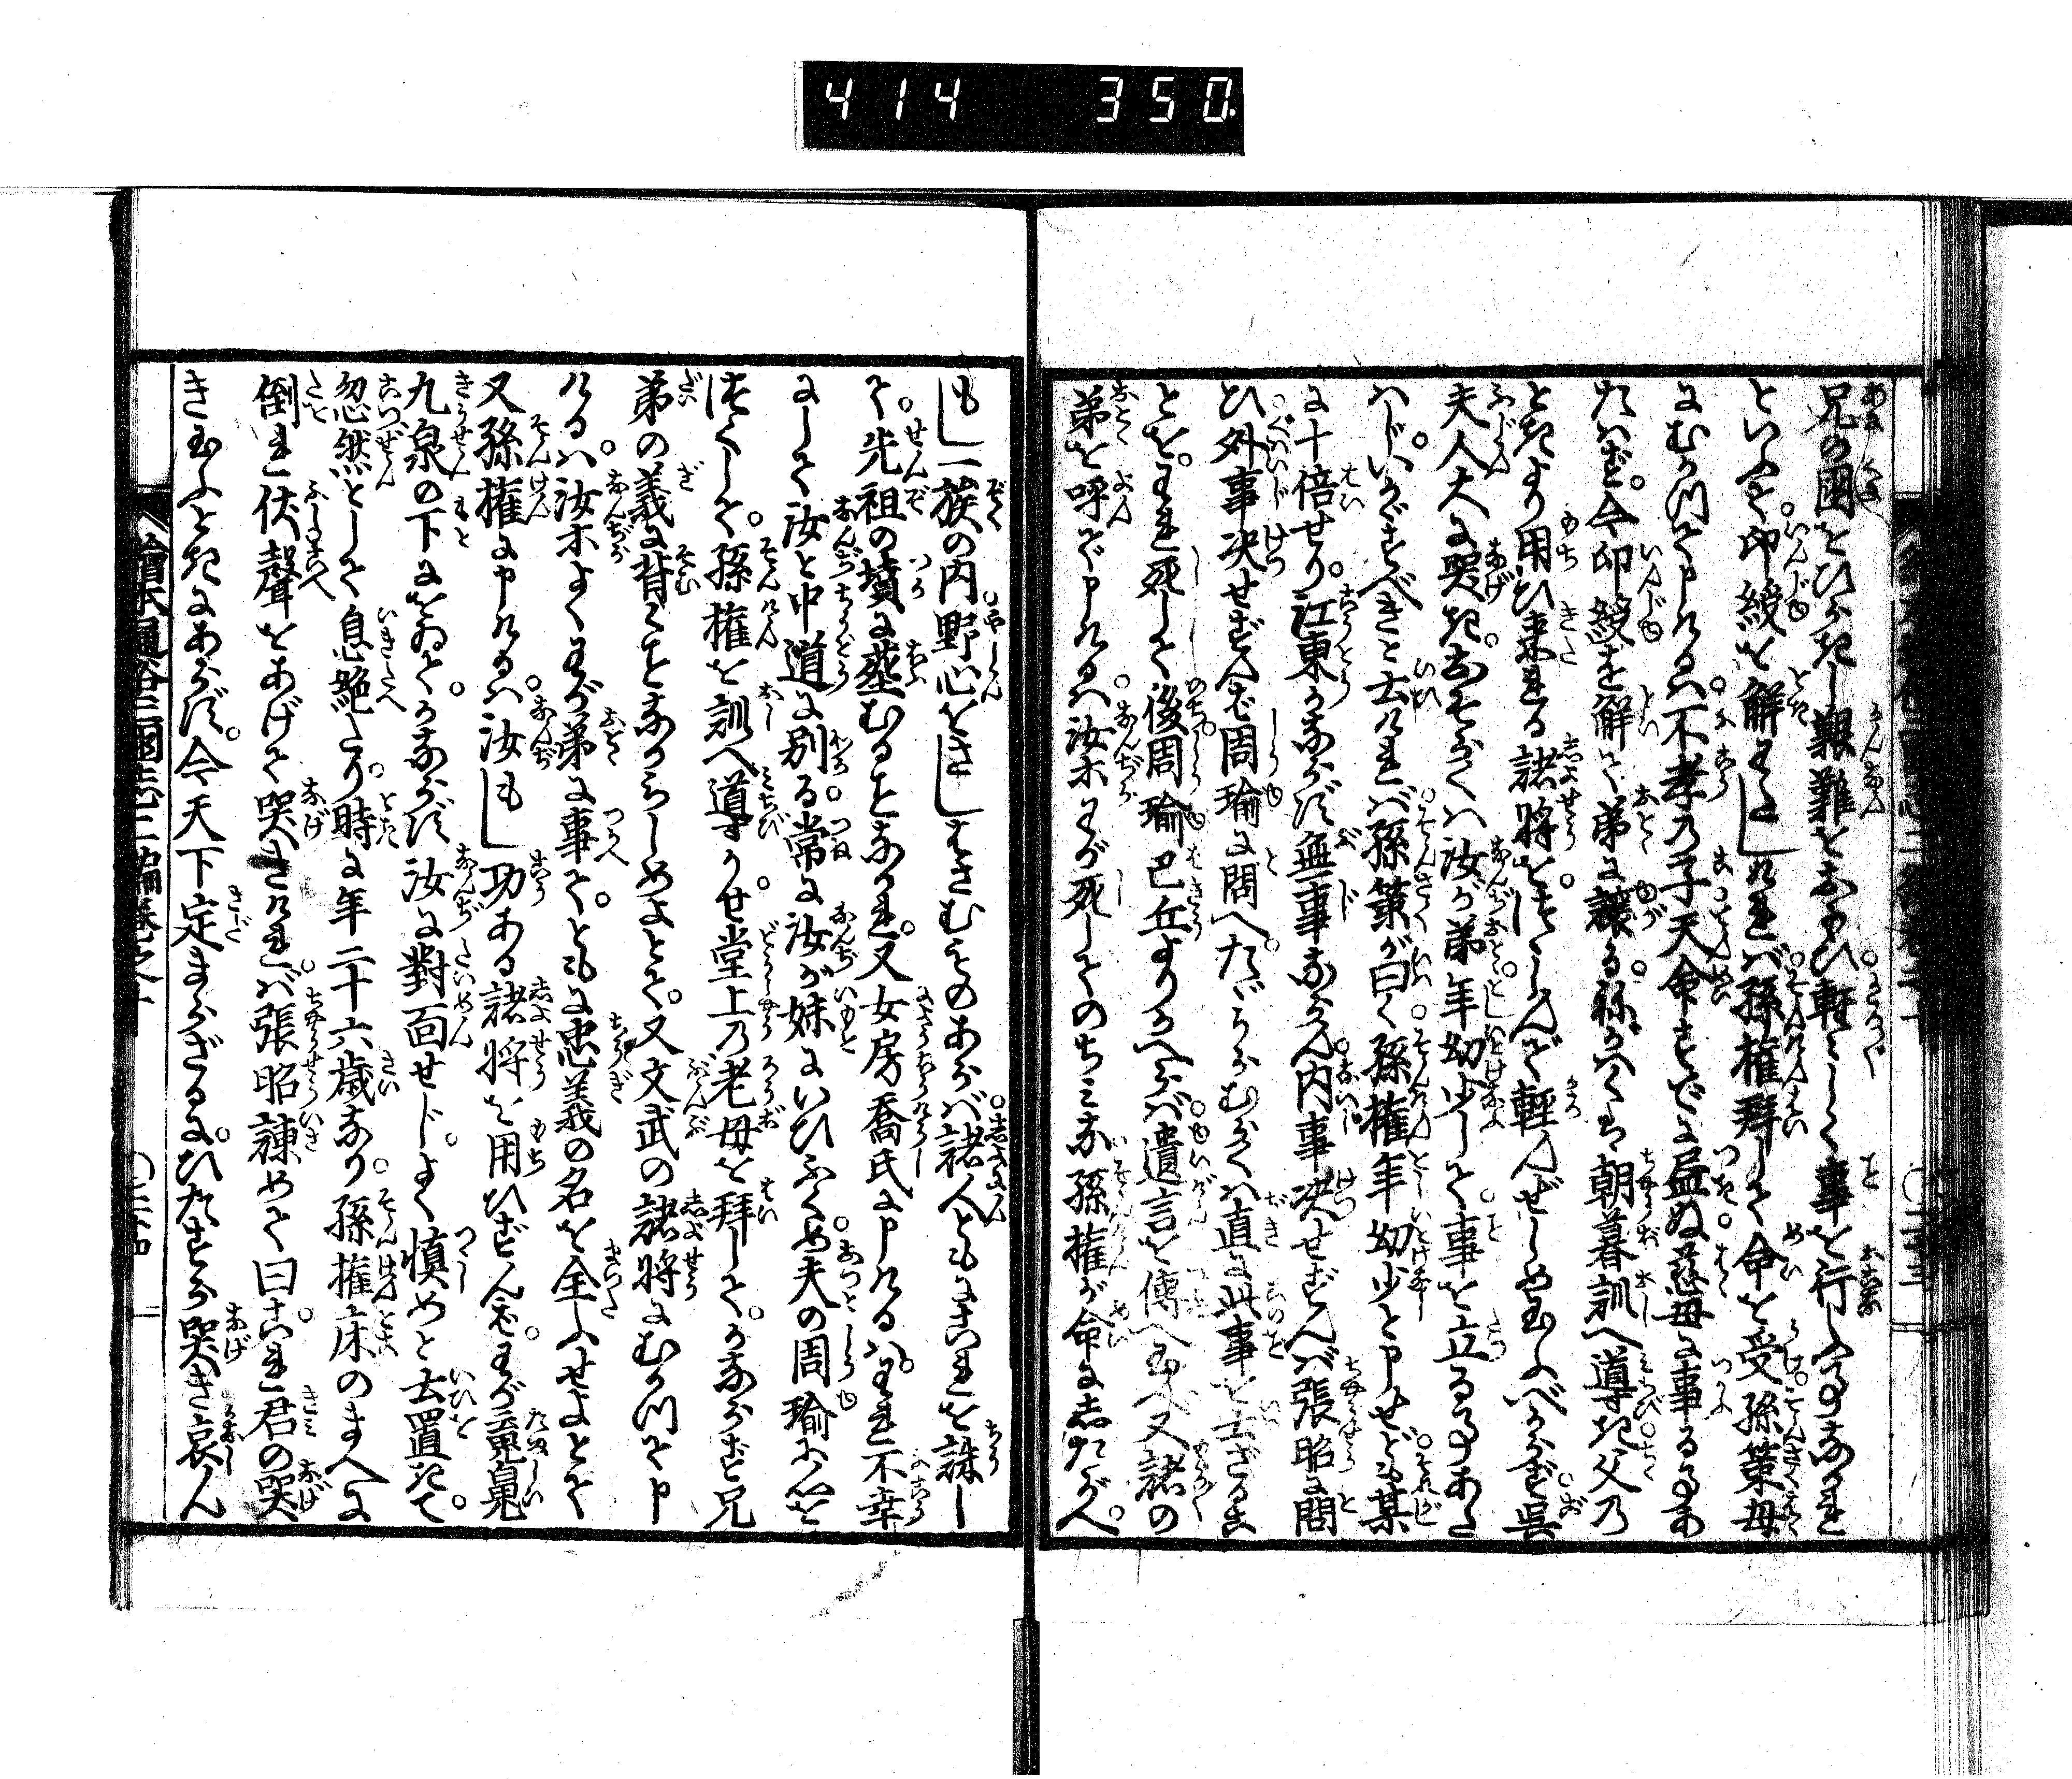 414 350.
兄の國をひらきし艱難をおもひ軽々しく事を行ふ事なかれ
といふて印綬を解わたしければ孫権拜して命を受孫策母
にむかつて申けるは不孝の子天命すでに盡ぬ慈母に事る事あ
たはず今印綬を解て弟に譲る祢がはくは朝暮訓へ導き父の
ときより用ひ来れる諸将をつつしんで軽んぜしめ玉ふべからず呉
夫人大に哭きおそらくは汝が弟年幼少して事を立る事あた
はじいかがすべきと云ければ孫策が曰く孫権年幼少と申せども某
に十倍せり江東かならず無事ならん内事決せずんば張昭に問
ひ外事決せずんば周瑜に問へただうらむらくは直に此事を云ざるこ
とをわれ死して後周瑜巴丘よりかへらば遺言を傳へ玉へ又諸の
弟を呼で申けるは汝等わが死してのちみな孫権が命にしたがへ
もし一族の内野心をさしはさむものあらば諸人ともにこれを誅し
て先祖の墳に葬むることなかれ又女房喬氏に申けるはわれ不幸
にして汝と中道に別る常に汝が妹にいひふくめ夫の周瑜に心を
つくして孫権を訓へ導かせ堂上の老母を拜してかならず兄
弟の義に背くことなからしめよとて又文武の諸将にむかつて申
けるは汝等よくわが弟に事てともに忠義の名を全ふせよとて
又孫権に申けるは汝もし功ある諸将を用ひずんばわが魂魄
九泉の下にをゐてかならず汝に對面せじよく慎めと云置きて
忽然として息絶たり時に年二十六歳なり孫権床のまへに
倒れ伏聲をあげて哭きければ張昭諌めて曰これ君の哭
き玉ふときにあらず今天下定まらざるにひたすら哭き哀ん
繪本通俗三國志二編巻之十
〇三十四